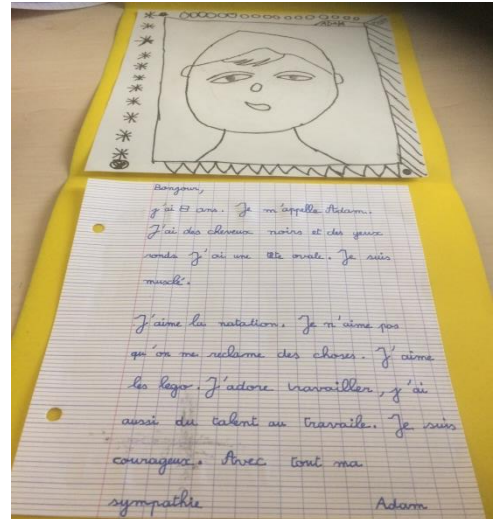 Bonjour,
j'ai 8 ans. Je m'appelle Adam.
J'ai des cheveux noirs et des yeux
ronds J'ai une tête ovale. Je suis
musclé.
J'aime la natation. Je n'aime pas
qu'on me reclame des choses. J'aime
les lego. J'adore travailler, j'ai
aussi du talent au travaile. Je suis
courageux. Avec tout ma
sympathie Adam